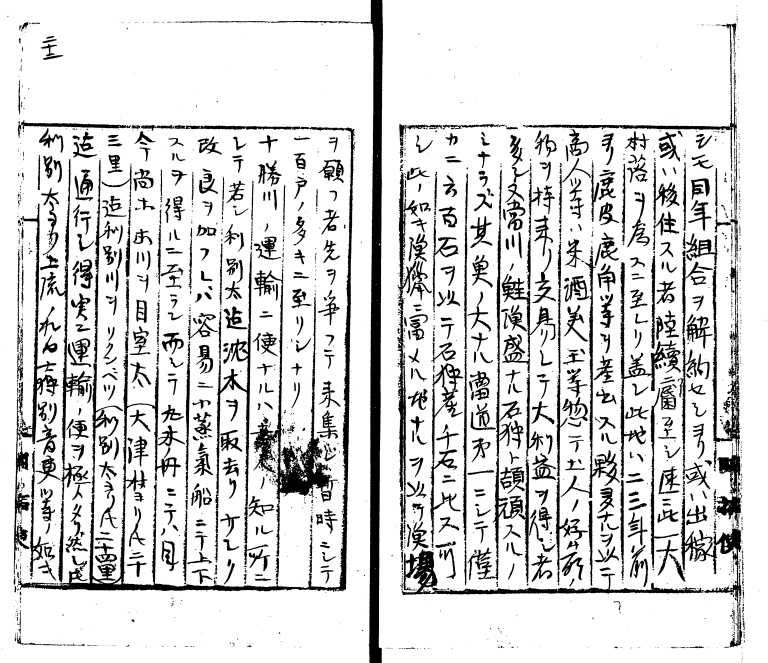 シモ同年組合ヲ解約セシヨリ或ハ出稼
或ハ移住スル者陸續ニ屬至シ速ニ此一大
村落ヲ為スニ至レリ蓋シ此地ハ二三年前
ヨリ鹿皮鹿角等ヲ産出スル夥多ナルヲ以テ
商人等ハ米酒美玉等惣テ土人ノ好ム所ノ
物ヲ持来リ交易シテ大利益ヲ得シ者
多シ又當川ノ鮭漁盛ナル石狩ト頡頏スルノ
ミナラズ其魚ノ大ナル當道第一ニシテ僅
カニ六百石ヲ以テ石狩産千石ニ比ス
シ此ノ如キ漁獵ニ富メル地ナルヲ以テ漁場
ヲ願フ者先ヲ争フテ来集シ暫時ニシテ
一百戸ノ多キニ至リシナリ
十勝川ノ運輸ニ便ナルハ ノ知ル所ニ
シテ若シ利別太迠沈木ヲ取去リ少シク
改良ヲ加フレバ容易ニ小蒸氣船ニテ上下
スルヲ得ルニ至ラン而シテ丸木舟ニテハ目
今尚ホ本川ヲ目室太(大津村ヨリ凡二十
三里)迠利別川ヲリクンベツ(利別太ヨリ凡二十四里)
迠通行シ得実ニ運輸ノ便ヲ極ム然レ𪜈
利別太ヨリ上流ハ札内士狩別音更等ノ如キ
二十二